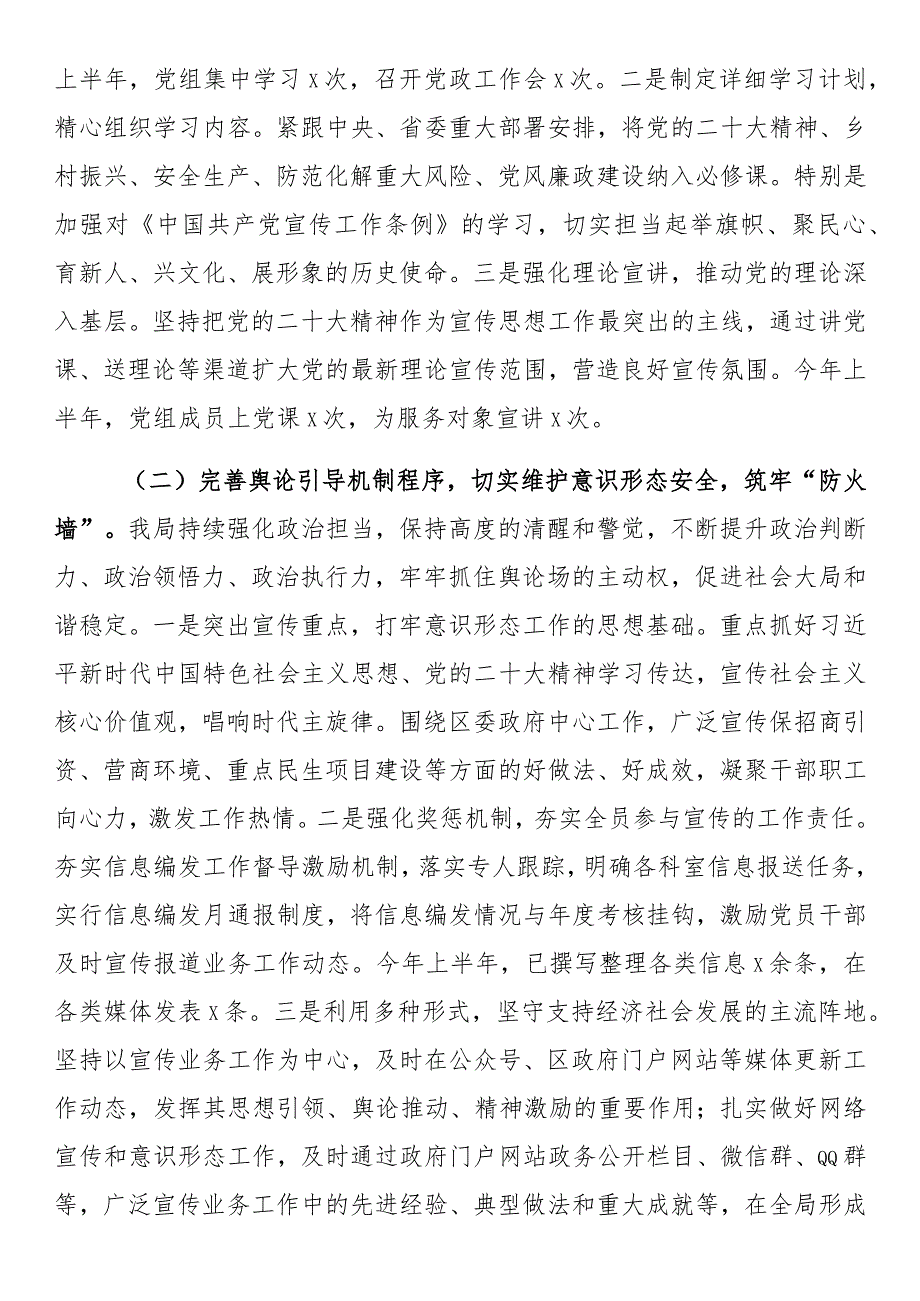 上半年，党组集中学习x次，召开党政工作会x次。二是制定详细学习计划，
精心组织学习内容。紧跟中央、省委重大部署安排，将党的二十大精神、乡
村振兴、安全生产、防范化解重大风险、党风廉政建设纳入必修课。特别是
加强对《中国共产党宣传工作条例》的学习，切实担当起举旗帜、聚民心、
育新人、兴文化、展形象的历史使命。三是强化理论宣讲，推动党的理论深
入基层。坚持把党的二十大精神作为宣传思想工作最突出的主线，通过讲党
课、送理论等渠道扩大党的最新理论宣传范围，营造良好宣传氛围。今年上
半年，党组成员上党课x次，为服务对象宣讲x次。
（二）完善舆论引导机制程序，切实维护意识形态安全，筑牢“防火
墙”。我局持续强化政治担当，保持高度的清醒和警觉，不断提升政治判断
力、政治领悟力、政治执行力，牢牢抓住舆论场的主动权，促进社会大局和
谐稳定。一是突出宣传重点，打牢意识形态工作的思想基础。重点抓好习近
平新时代中国特色社会主义思想、党的二十大精神学习传达，宣传社会主义
核心价值观，唱响时代主旋律。围绕区委政府中心工作，广泛宣传保招商引
资、营商环境、重点民生项目建设等方面的好做法、好成效，凝聚干部职工
向心力，激发工作热情。二是强化奖惩机制，夯实全员参与宣传的工作责任。
夯实信息编发工作督导激励机制，落实专人跟踪，明确各科室信息报送任务，
实行信息编发月通报制度，将信息编发情况与年度考核挂钩，激励党员干部
及时宣传报道业务工作动态。今年上半年，已撰写整理各类信息x余条，在
各类媒体发表x条。三是利用多种形式，坚守支持经济社会发展的主流阵地。
坚持以宣传业务工作为中心，及时在公众号、区政府门户网站等媒体更新工
作动态，发挥其思想引领、舆论推动、精神激励的重要作用；扎实做好网络
宣传和意识形态工作，及时通过政府门户网站政务公开栏目、微信群、QQ群
等，广泛宣传业务工作中的先进经验、典型做法和重大成就等，在全局形成